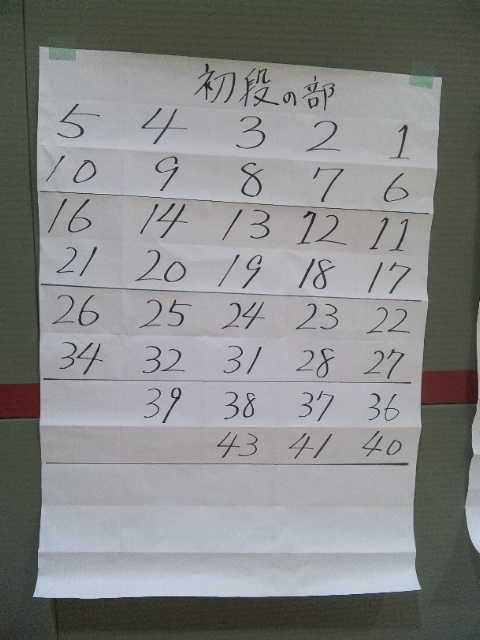 初段の部
5 4 3 2 1
10 9 8 7 6
16 14 13 12 11
21 20 19 18 17
26 25 24 23 22
34 32 31 28 27
39 38 37 36
43 41 40